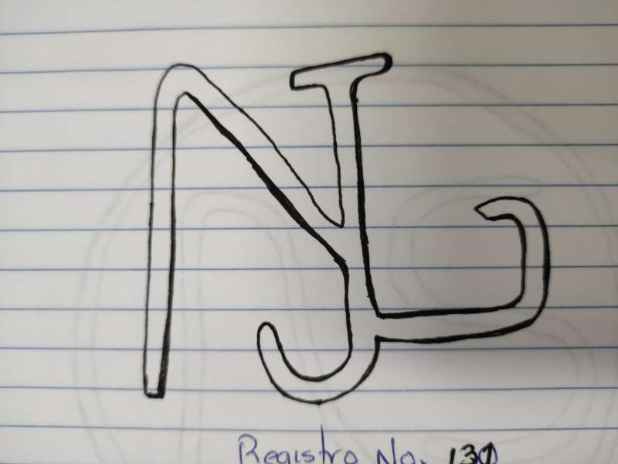 NJL
Registro No. 131